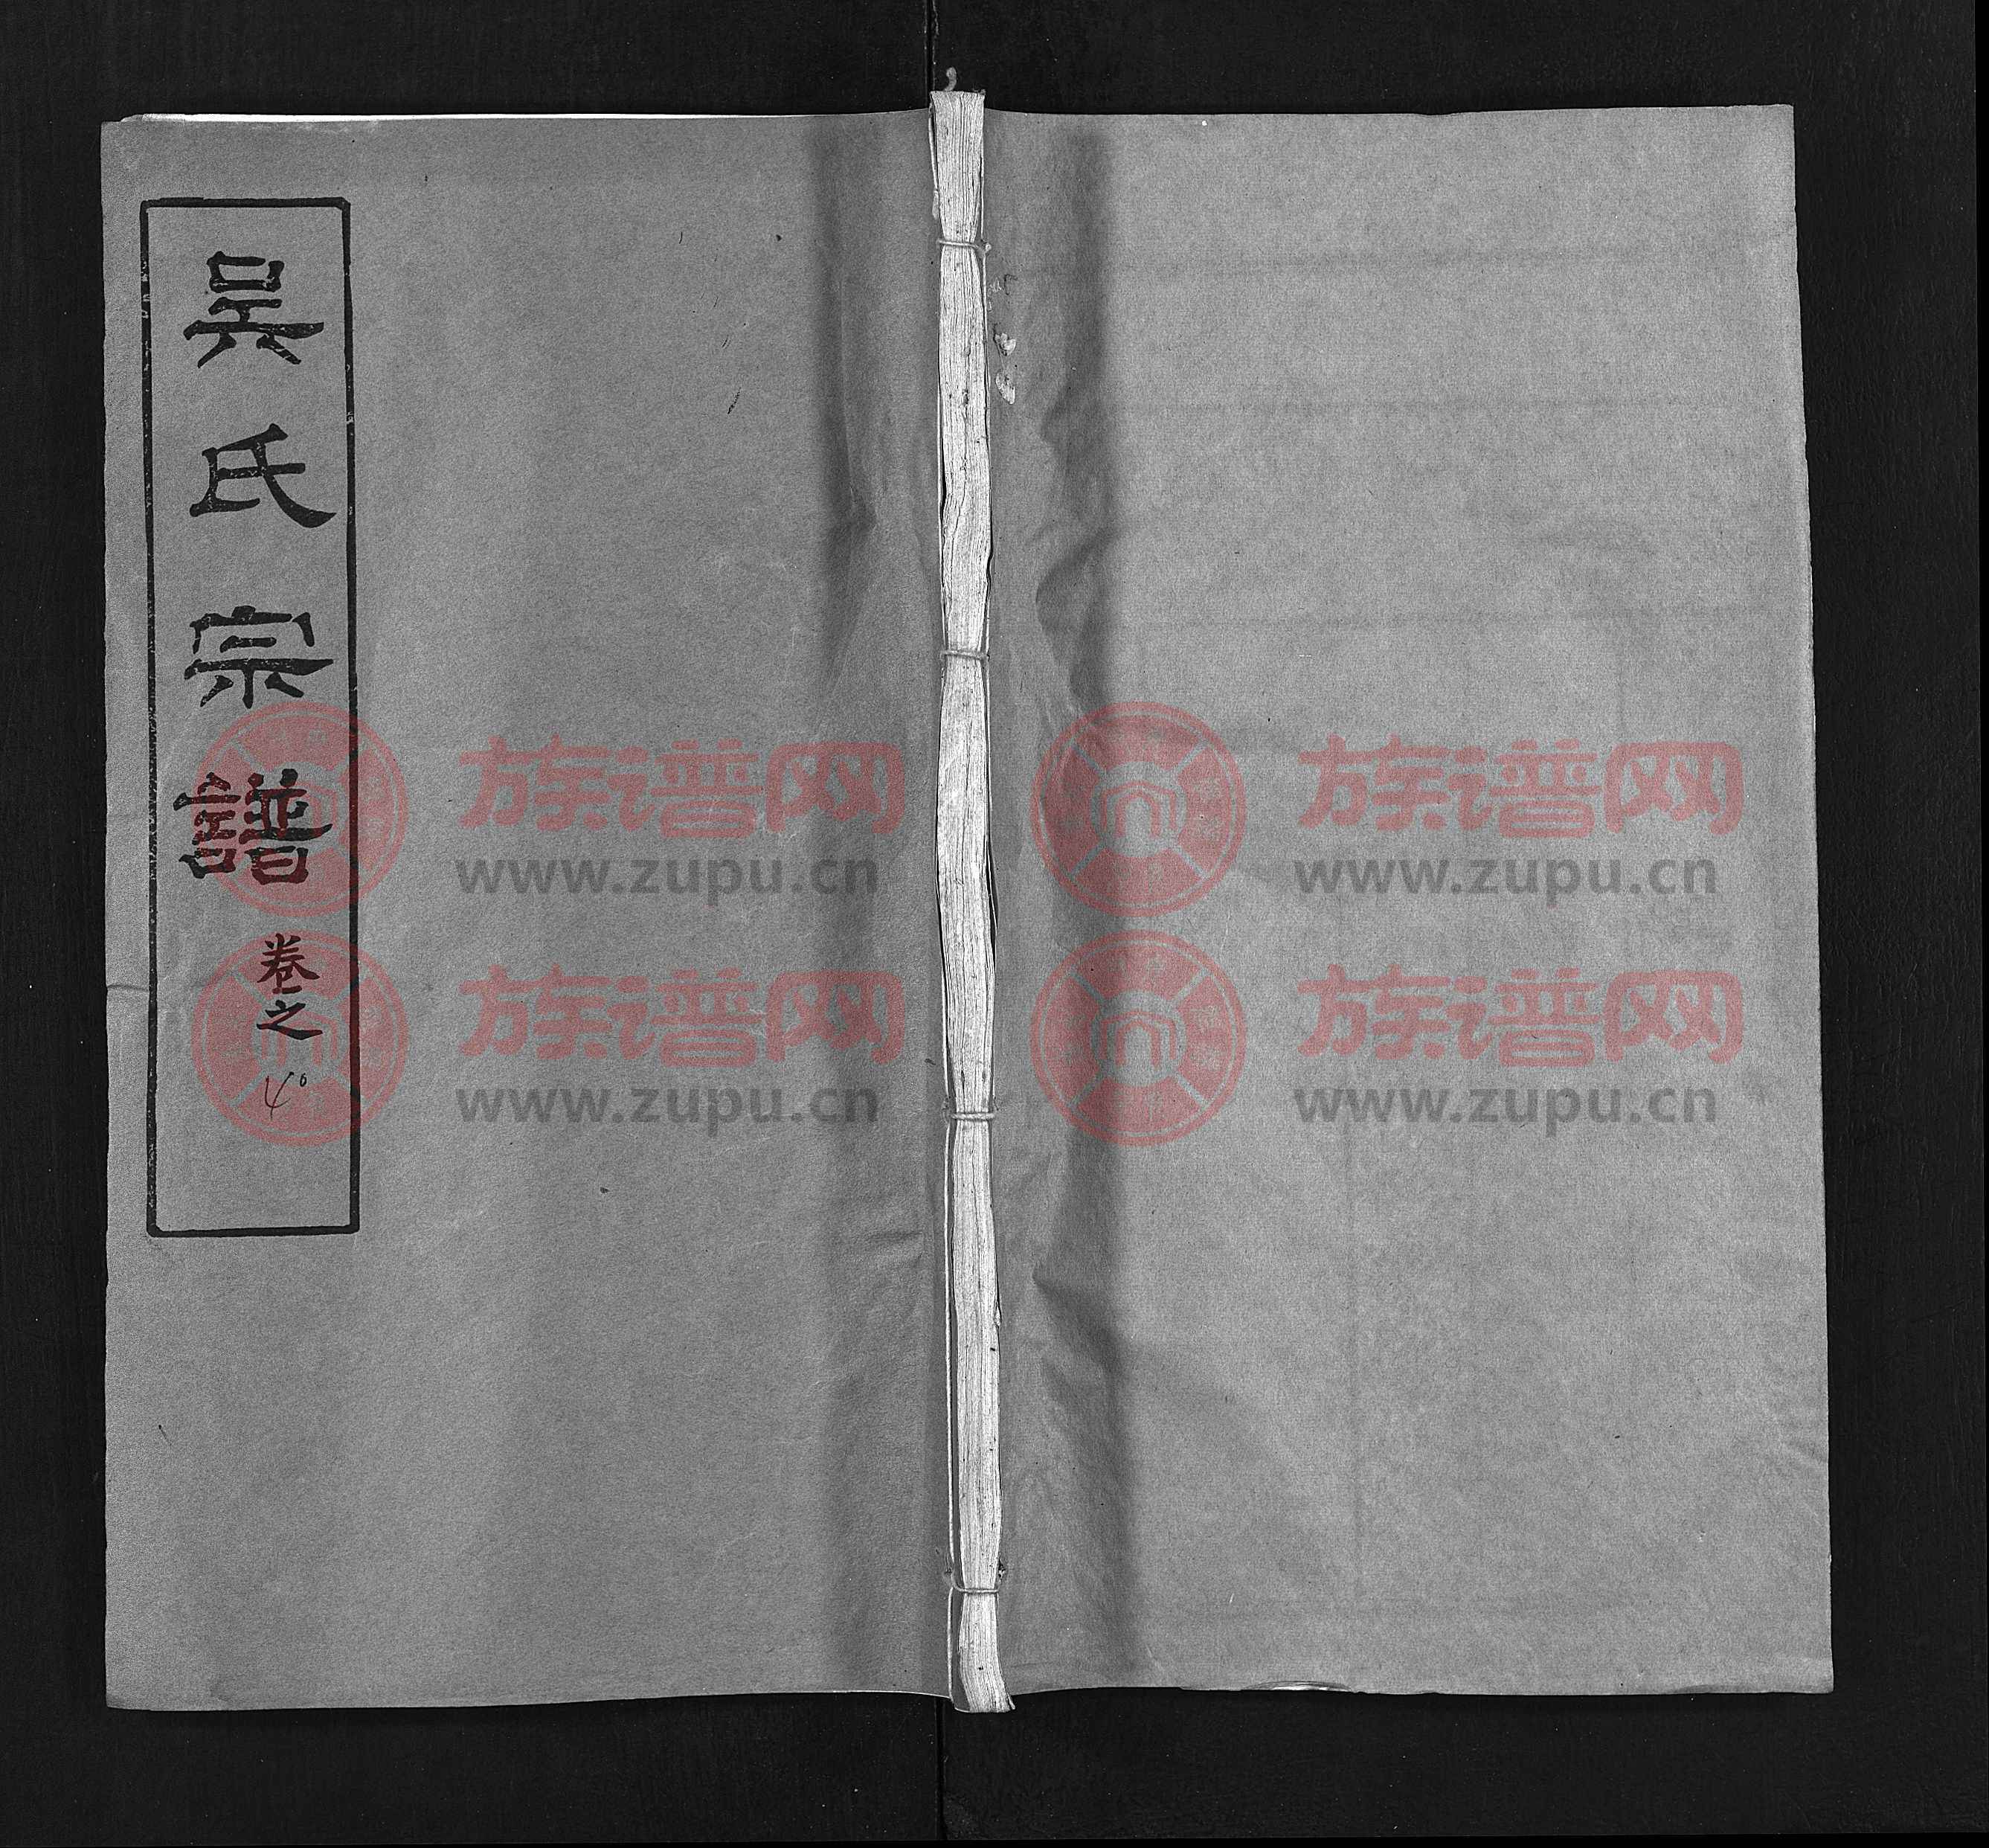 吳氏宗譜
卷之
4
族谱网
www.zupu.cn
族谱网
www.zupu.cn
族谱网
www.zupu.cn
族谱网
www.zupu.cn